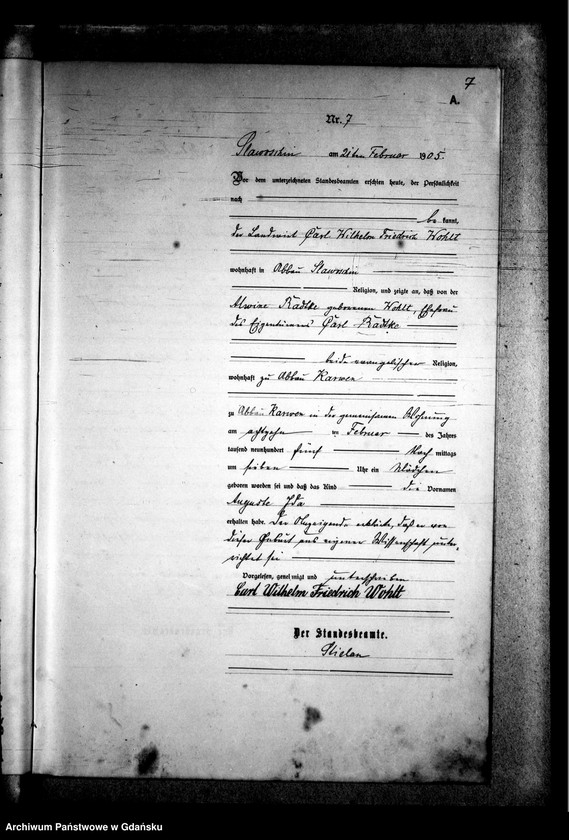 7
A.
Nr. 7
Slawoschin am 21ten Februar 1905.
Vor dem unterzeichneten Standesbeamten erschien heute, der Persönlichkeit
nach
be kannt,
der Landwirt Carl Wilhelm Friedrich Wohlt
wohnhaft in Abbau Slawoschin
Religion, und zeigte an, daß von der
Alwine Radtke geborenen Wohlt, Ehefrau
des Eigentümers Carl Radtke
beide evangelischer Religion,
wohnhaft zu Abbau Karwen
zu Abbau Karwen in der gemeinsamen Wohnung
am achtzehn ten Februar des Jahres
tausend neunhundert fünf Nach mittags
um sieben Uhr ein Mädchen
geboren worden sei und daß das Kind die Vornamen
Auguste Ida
erhalten habe. Der Anzeigende erklärte, daß er von
dieser Geburt aus eigener Wissenschaft unter-
richtet sei
Vorgelesen, genehmigt und unterschrieben
Carl Wilhelm Friedrich Wohlt
Der Standesbeamte.
Archiwum Państwowe w Gdańsku